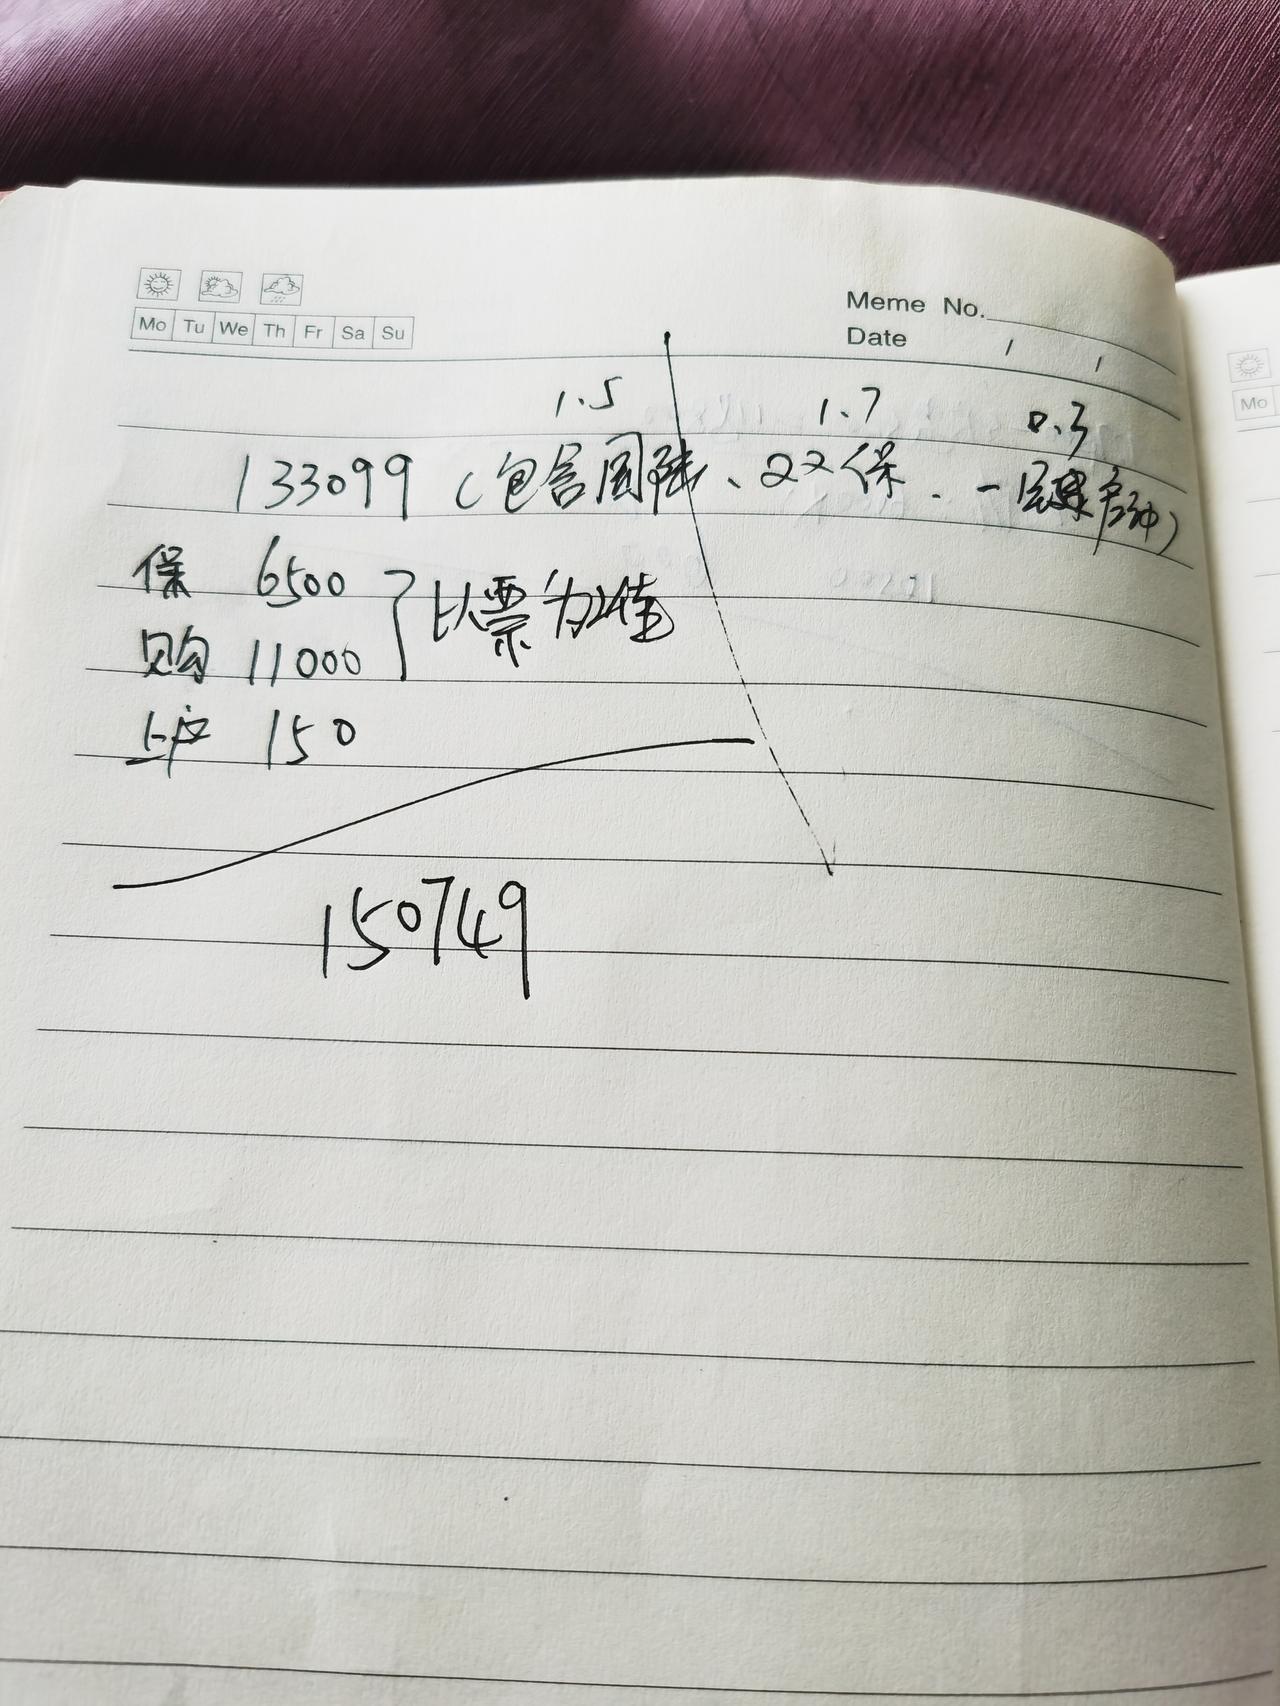 Meme No.
Mo Tu We Th Fr Sa Su
Date / /
1.5 1.7 0.3
133099 (包含国陆、22保、一键启动)
保 6500
购 11000
以票为准
上户 150
150749
Mo